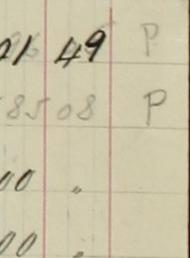 21 49 P
8508 P
00 "
00 "